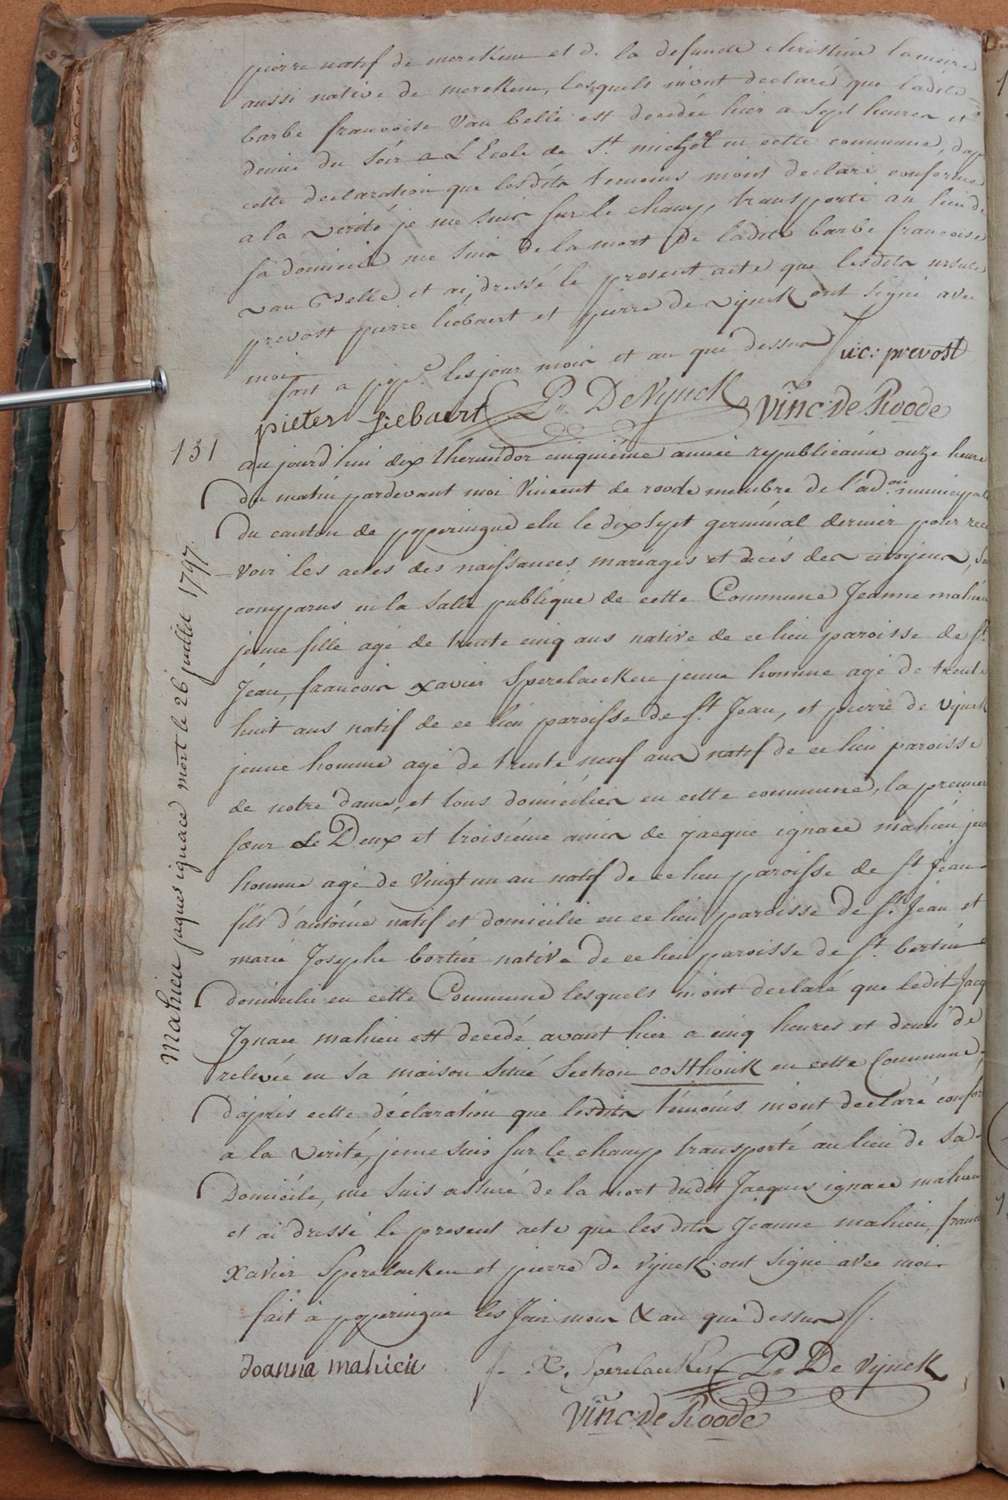 pierre natif de merckem et de la defuncte christine lameire
aussi native de merckem, lesquels m'ont declaré que ladite
barbe francoise van belle est decedée hier a sept heures et
demie du soir a L'Ecole de St. michel en cette commune, d'apres
cette declaration que lesdits temoins m'ont declaré conforme
a la verité je me suis sur le champ, transporté au lieu de
sa domicile me suis de la mort de ladite barbe francoise
van Belle, et ai dressé le present acte que lesdits
prevost pierre liebaert et pierre de vijnck ont signé avec
moi
fait a pop.e les jour mois et an que dessus // u:c: prevost
pieter Liebaert P.r De Vijnck Vinc: de Roode
131
aujourd'hui dix thermidor cinquième année republicaine onze heure
du matin pardevant moi Vincent de roode membre de l'ad.on municipale
du canton de poperingue elu le dix sept germinal dernier pour rece
voir les actes des naissances mariages et decés des citoyens, sont
comparus en la salle publique de cette Commune Jeanne mahieu
jeune fille agé de trente cinq ans native de ce lieu paroisse de St.
Jean, francois xavier Sperelaecken jeune homme agé de trente
huit ans natif de ce lieu paroisse de St. Jean, et pierre de vijnck
jeune homme agé de trente neuf ans natif de ce lieu paroisse
de notre dame, et tous domiciliés en cette commune, la premiere
sœur Le Deux et troisiéme amis de jacque ignace mahieu jeune
homme agé de vingt un an natif de ce lieu paroisse de St Jean
fils d'antoine natif et domicilié en ce lieu paroisse de St. Jean et
marie Josephe bortier native de ce lieu paroisse de St. bertin
domicilie en cette Commune lesquels m'ont declaré que ledit Jacq
Ignace mahieu est decedé avant hier a cinq heures et demi de
relevée en sa maison situé section oosthouk en cette Commune,
d'après cette déclaration que lesdits témoins m'ont declaré confor
a la verité, je me suis sur le champ transporté au lieu de sa
Domicile, me suis assuré de la mort dudit Jacques ignace mahieu
et ai dressé le present acte que lesdits Jeanne mahieu, franc
xavier Sperelaecken et pierre de vijnck ont signé avec moi
fait à poperingue les Jour mois & an que dessus //.
Joanna mahieu f. X. Sperelaecken P.r De Vijnck
Vinc: de Roode
Mahieu jaques ignace mort le 26 juillet 1797.